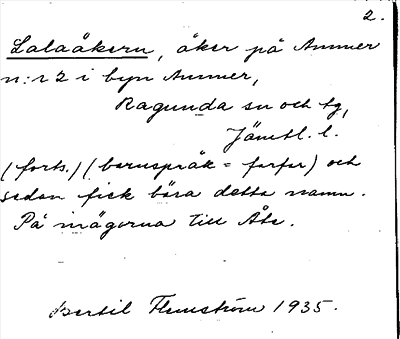 2.
Lalaåkern, åker på Ammer
n:r 2 i byn Ammer,
Ragunda sn och tg,
Jämtl. l.
(forts.) (barnspråk = farfar) och
sedan fick bära detta namn.
På inägorna till Åte.
Bertil Flemström 1935.